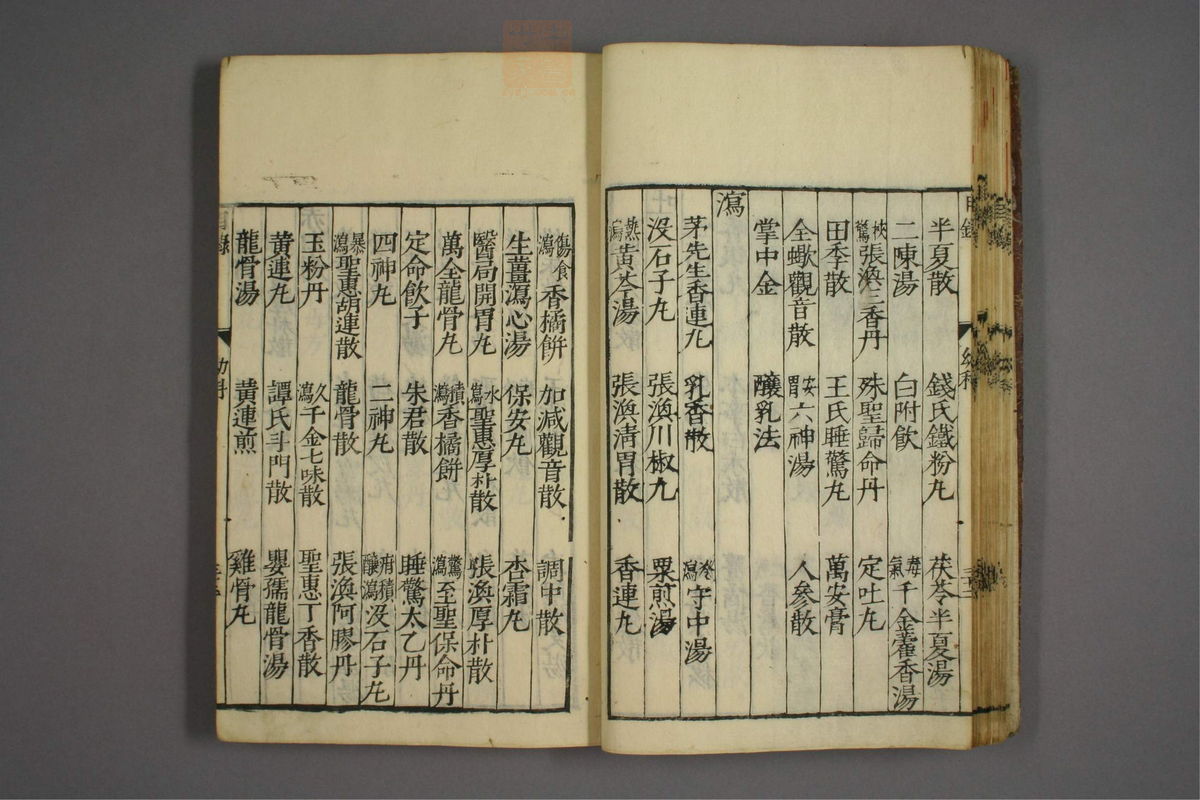 半夏散 錢氏鐵粉丸 茯苓半夏湯
二陳湯 白附飲 毒氣千金藿香湯
挾驚張渙三香丹 殊聖歸命丹 定吐丸
田季散 王氏睡驚丸 萬安膏
全蠍觀音散 安胃六神湯 人參散
掌中金 釀乳法
瀉
茅先生香連丸 乳香散 冷瀉守中湯
沒石子丸 張渙川椒丸 粟煎湯
熱瀉黃芩湯 張渙清胃散 香連丸
傷食瀉香橘餅 加減觀音散 調中散
生薑瀉心湯 保安丸 杏霜丸
醫局開胃丸 水瀉聖惠厚朴散 張渙厚朴散
萬全龍骨丸 積瀉香橘餅 驚瀉至聖保命丹
定命飲子 朱君散 睡驚太乙丹
四神丸 二神丸 疳積釀瀉沒石子丸
暴瀉聖惠胡連散 龍骨散 張渙阿膠丹
玉粉丹 久瀉千金七味散 聖惠丁香散
黃連丸 譚氏斗門散 嬰孺龍骨湯
龍骨湯 黃連煎 雞骨丸
目錄 幼科